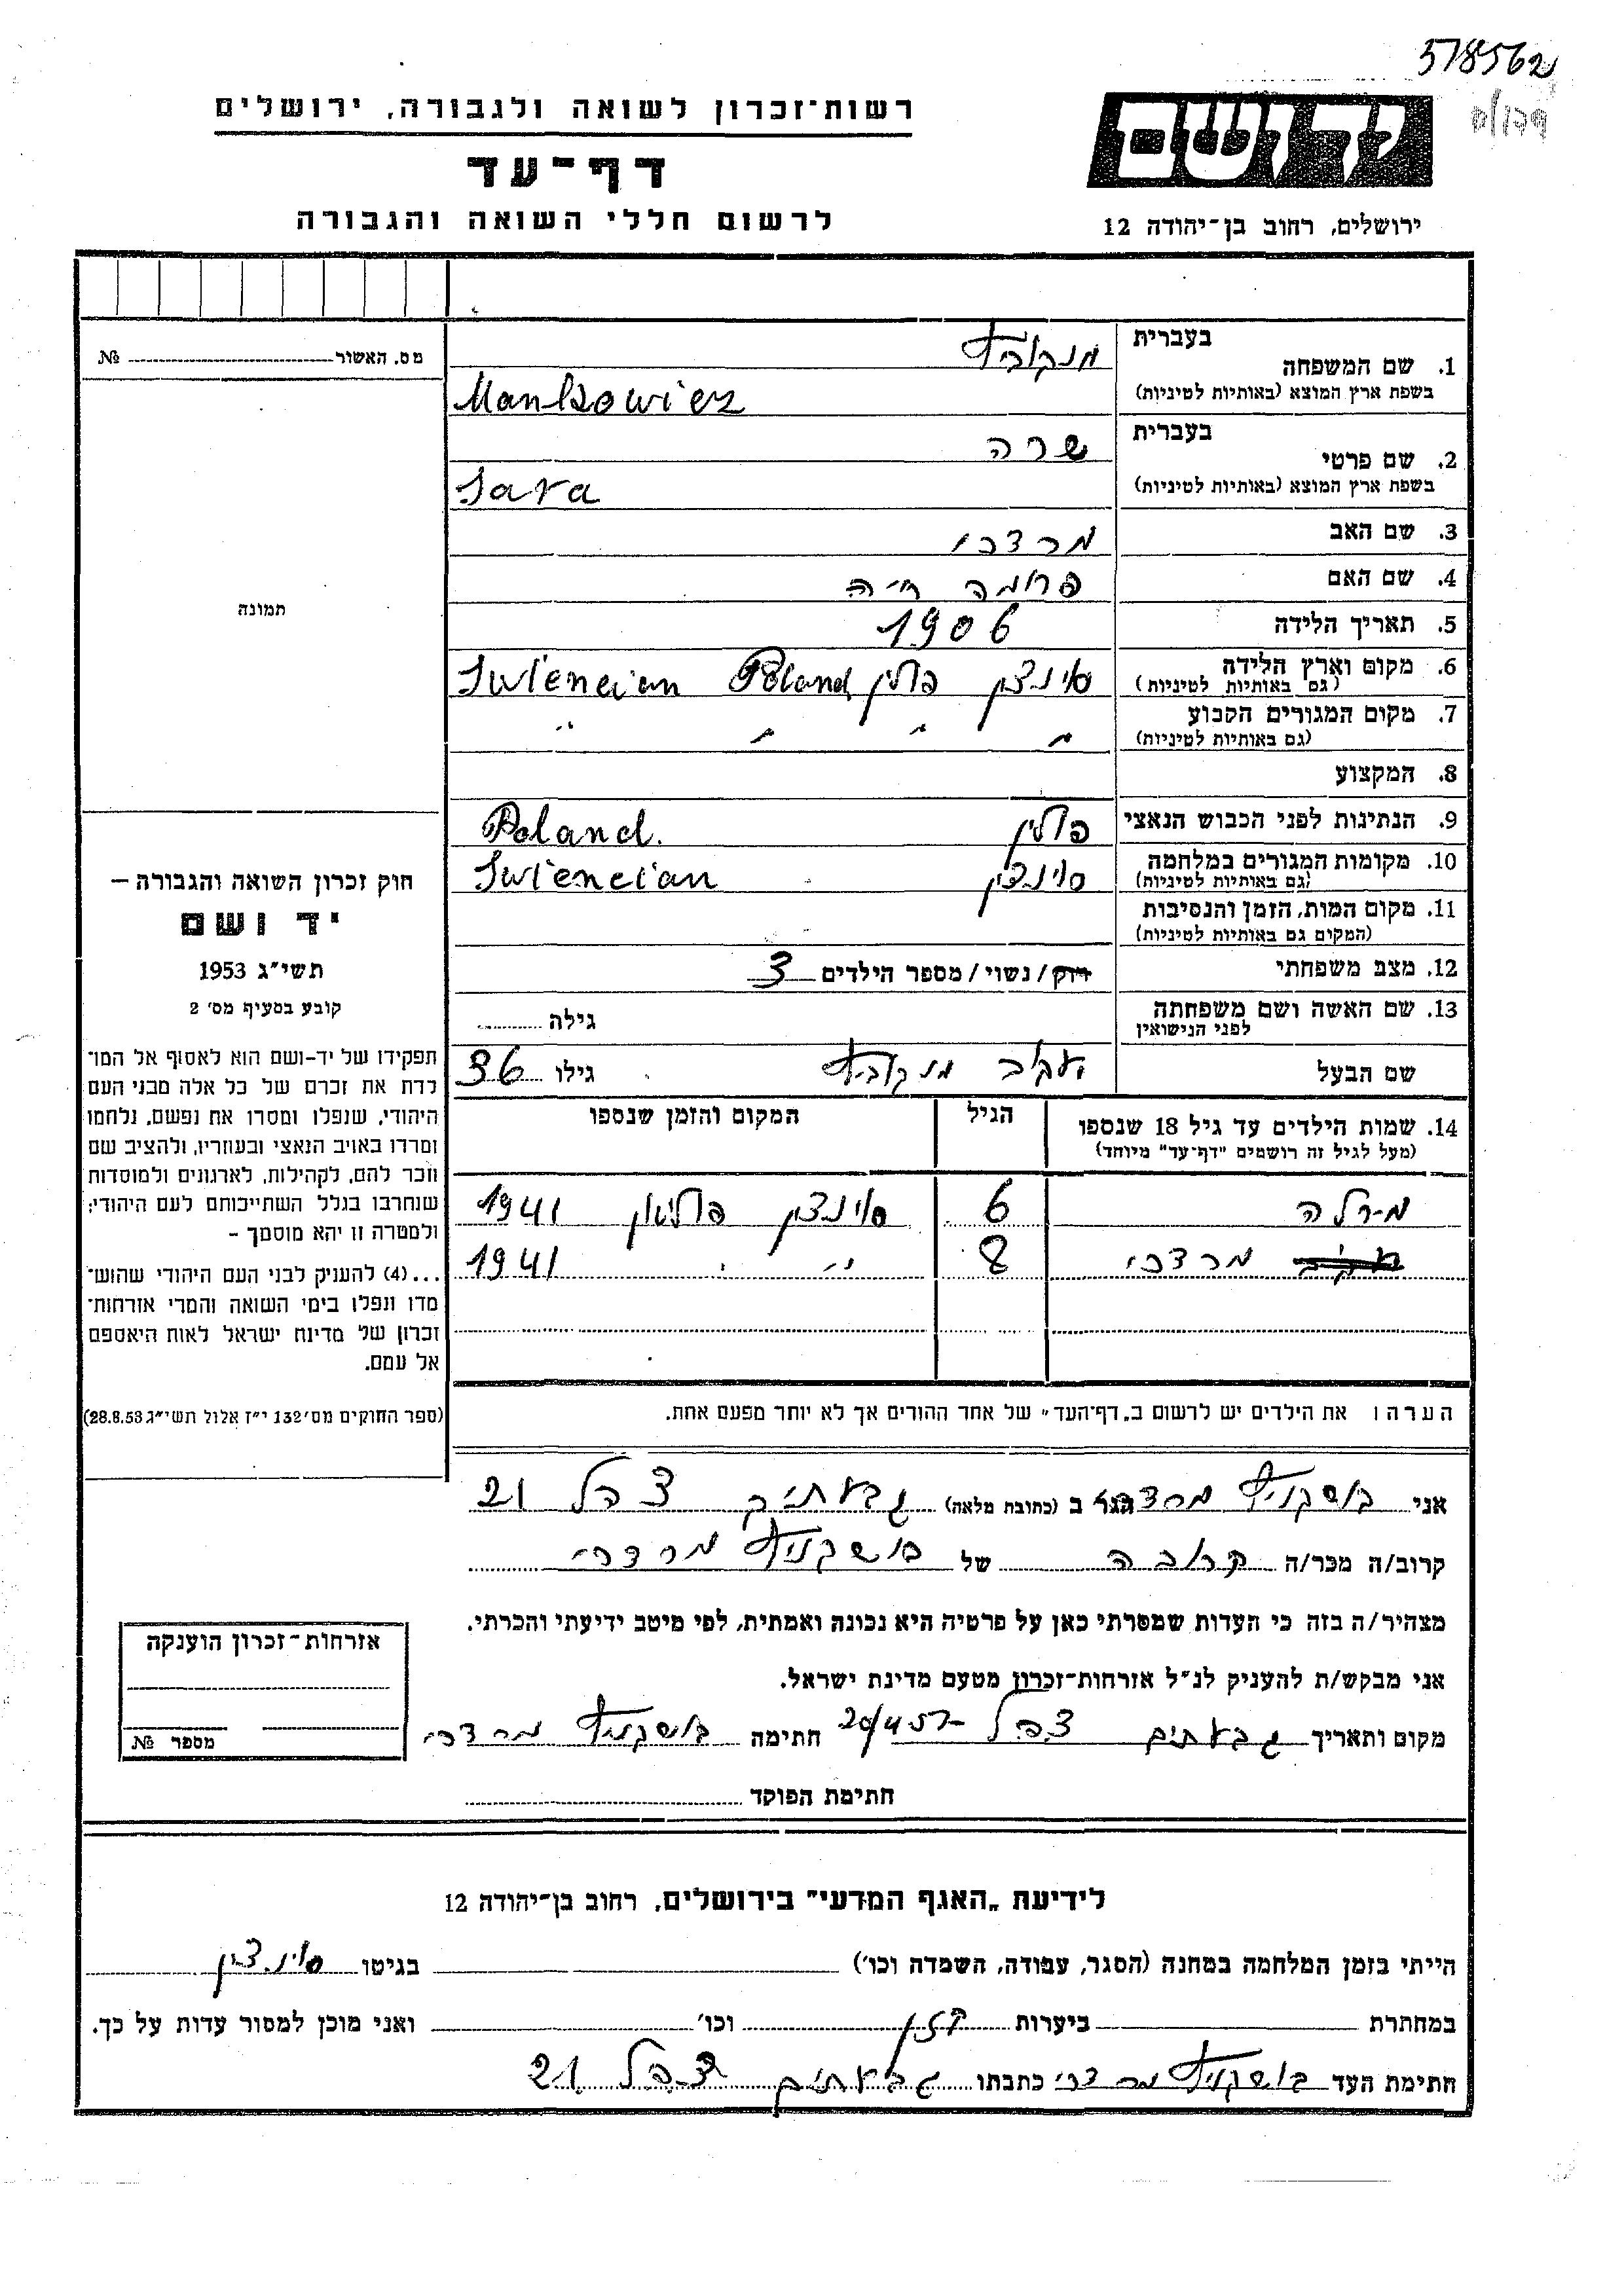 578562
יד ושם
ירושלים, רחוב בן־יהודה 12
רשות־זכרון לשואה ולגבורה, ירושלים
דף־עד
לרשום חללי השואה והגבורה
1. שם המשפחה
בעברית
מנקוביץ
בשפת ארץ המוצא (באותיות לטיניות)
Mankowicz
2. שם פרטי
בעברית
שרה
בשפת ארץ המוצא (באותיות לטיניות)
Sara
3. שם האב מרדכי
4. שם האם פרומה חיה
5. תאריך הלידה 1906
6. מקום וארץ הלידה
(גם באותיות לטיניות) סוינצין פולין Poland Swiencian
7. מקום המגורים הקבוע
(גם באותיות לטיניות) " " " "
8. המקצוע
9. הנתינות לפני הכבוש הנאצי פולין Poland.
10. מקומות המגורים במלחמה
(גם באותיות לטיניות) סוינצין Swiencian
11. מקום המות, הזמן והנסיבות
(המקום גם באותיות לטיניות)
12. מצב משפחתי רוק/ נשוי/ מספר הילדים 3
13. שם האשה ושם משפחתה
לפני הנישואין
גילה
שם הבעל יעקב מנקוביץ גילו 36
14. שמות הילדים עד גיל 18 שנספו
(מעל לגיל זה רושמים "דף־עד" מיוחד)
הגיל
המקום והזמן שנספו
מירלה 6 סוינצין 1941
מרדכי 8 " " 1941
הערה: את הילדים יש לרשום ב„דף־העד" של אחד ההורים אך לא יותר מפעם אחת.
מס. האשור № 
תמונה
חוק זכרון השואה והגבורה —
יד ושם
תשי"ג 1953
קובע בסעיף מס' 2
תפקידו של יד-ושם הוא לאסוף אל המו־
לדת את זכרם של כל אלה מבני העם
היהודי, שנפלו ומסרו את נפשם, נלחמו
ומרדו באויב הנאצי ובעוזריו, ולהציב שם
וזכר להם, לקהילות, לארגונים ולמוסדות
שנחרבו בגלל השתייכותם לעם היהודי;
ולמטרה זו יהא מוסמך –
...(4) להעניק לבני העם היהודי שהוש־
מדו ונפלו בימי השואה והמרי אזרחות־
זכרון של מדינת ישראל לאות היאספם
אל עמם.
(ספר החוקים מס' 132 י"ז אלול תשי"ג 28.8.53)
אני בושקניץ מרדכי הגר ב (כתובת מלאה) גבעתים צהל 21
קרוב/ה מכר/ה קרובה של בושקניץ מרדכי
מצהיר/ה בזה כי העדות שמסרתי כאן על פרטיה היא נכונה ואמתית, לפי מיטב ידיעתי והכרתי.
אני מבקש/ת להעניק לנ"ל אזרחות־זכרון מטעם מדינת ישראל.
מקום ותאריך גבעתים צהל חתימה בושקניץ מרדכי
חתימת הפוקד
אזרחות־זכרון הוענקה
מספר №
לידיעת „האגף המדעי" בירושלים, רחוב בן־יהודה 12
הייתי בזמן המלחמה במחנה (הסגר, עבודה, השמדה וכו') בגיטו סוינצין
במחתרת ביערות וכו' ואני מוכן למסור עדות על כך.
חתימת העד בושקניץ מרדכי כתבתו גבעתים צהל 21